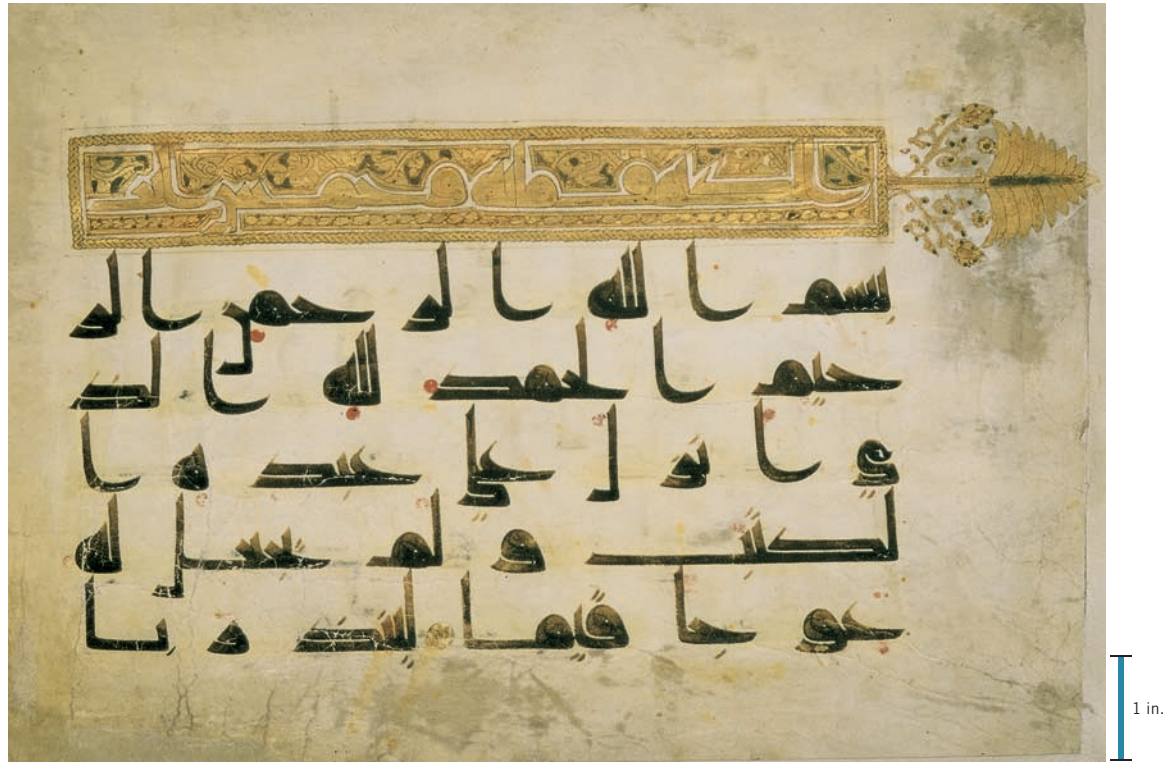 بسم الله الرحمن الر
حيم الحمد لله الذ
ي انزل على عبده ا
لكتب ولم يجعل له
عوجا قيما لينذر با
1 in.